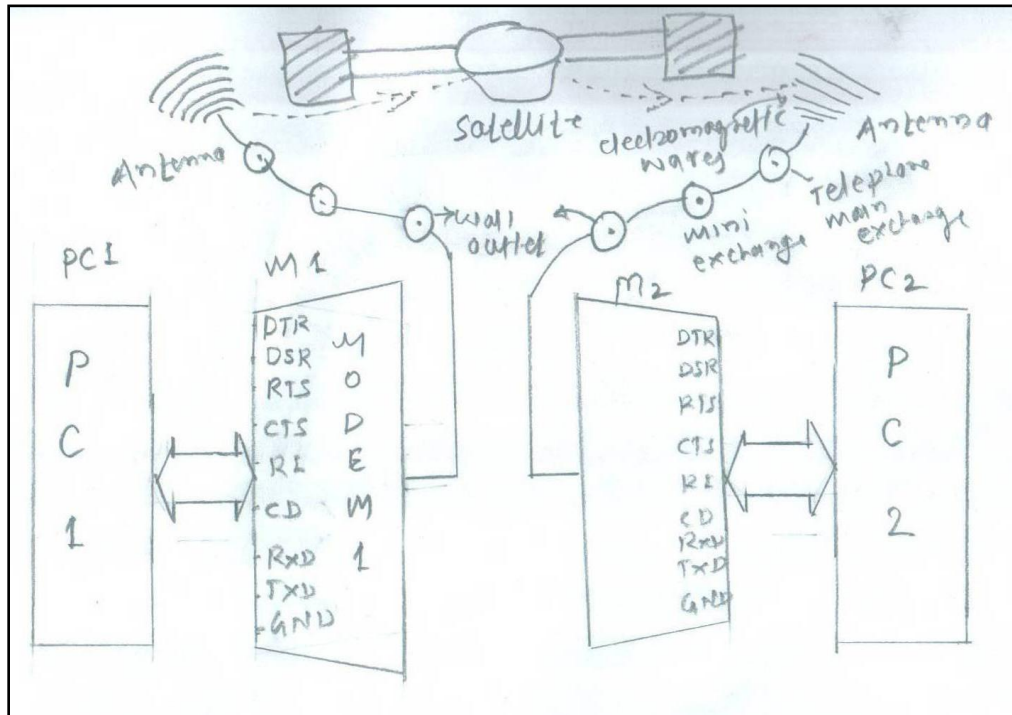 Satellite
Antenna
electromagnetic
waves
Antenna
wall
outlet
mini
exchange
Telephone
main
exchange
PC1
M1
M2
PC2
P
C
1
DTR
DSR
RTS
CTS
RI
CD
RxD
TXD
GND
M
O
D
E
M
1
DTR
DSR
RTS
CTS
RI
CD
RxD
TXD
GND
P
C
2